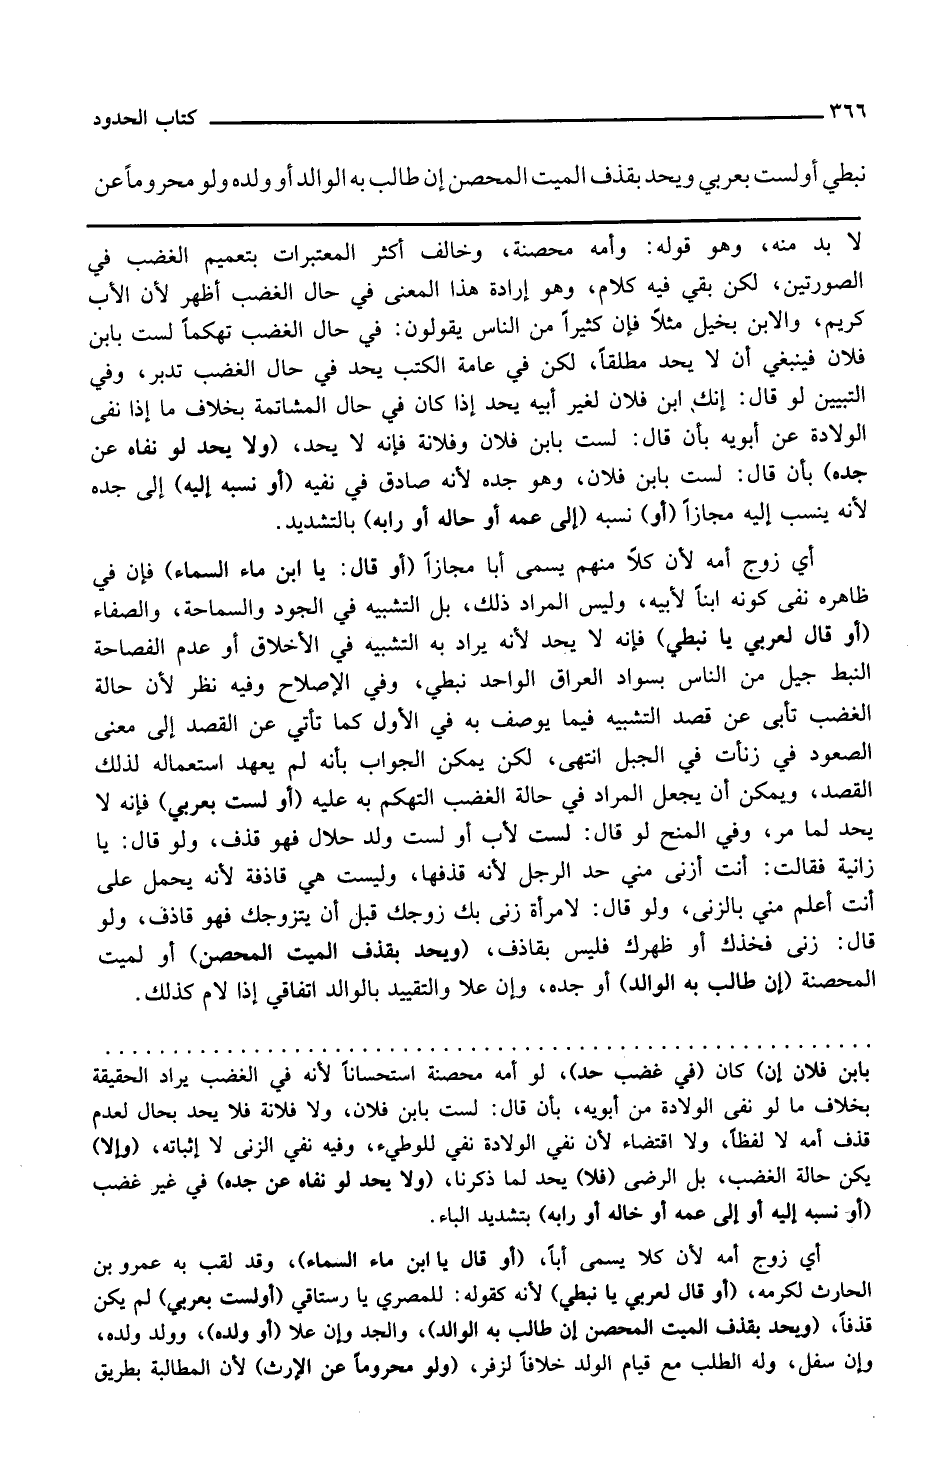 ٣٦٦ كتاب الحدود
نبطي أو لست بعربي ويحد بقذف الميت المحصن إن طالب به الوالد أو ولده ولو محروماً عن
لا بد منه، وهو قوله: وأمه محصنة، وخالف أكثر المعتبرات بتعميم الغضب في
الصورتين، لكن بقي فيه كلام، وهو إرادة هذا المعنى في حال الغضب أظهر لأن الأب
كريم، والابن بخيل مثلاً فإن كثيراً من الناس يقولون: في حال الغضب تهكماً لست بابن
فلان فينبغي أن لا يحد مطلقاً، لكن في عامة الكتب يحد في حال الغضب تدبر، وفي
التبيين لو قال: إنك ابن فلان لغير أبيه يحد إذا كان في حال المشاتمة بخلاف ما إذا نفى
الولادة عن أبويه بأن قال: لست بابن فلان وفلانة فإنه لا يحد، (ولا يحد لو نفاه عن
جده) بأن قال: لست بابن فلان، وهو جده لأنه صادق في نفيه (أو نسبه إليه) إلى جده
لأنه ينسب إليه مجازاً (أو) نسبه (إلى عمه أو حاله أو رابه) بالتشديد.
أي زوج أمه لأن كلاً منهم يسمى أبا مجازاً (أو قال: يا ابن ماء السماء) فإن في
ظاهره نفى كونه ابناً لأبيه، وليس المراد ذلك، بل التشبيه في الجود والسماحة، والصفاء
(أو قال لعربي يا نبطي) فإنه لا يحد لأنه يراد به التشبيه في الأخلاق أو عدم الفصاحة
النبط جيل من الناس بسواد العراق الواحد نبطي، وفي الإصلاح وفيه نظر لأن حالة
الغضب تأبى عن قصد التشبيه فيما يوصف به في الأول كما تأتي عن القصد إلى معنى
الصعود في زنأت في الجبل انتهى، لكن يمكن الجواب بأنه لم يعهد استعماله لذلك
القصد، ويمكن أن يجعل المراد في حالة الغضب التهكم به عليه (أو لست بعربي) فإنه لا
يحد لما مر، وفي المنح لو قال: لست لأب أو لست ولد حلال فهو قذف، ولو قال: يا
زانية فقالت: أنت أزنى مني حد الرجل لأنه قذفها، وليست هي قاذفة لأنه يحمل على
أنت أعلم مني بالزنى، ولو قال: لامرأة زنى بك زوجك قبل أن يتزوجك فهو قاذف، ولو
قال: زنى فخذك أو ظهرك فليس بقاذف، (ويحد بقذف الميت المحصن) أو لميت
المحصنة (إن طالب به الوالد) أو جده، وإن علا والتقييد بالوالد اتفاقي إذا لام كذلك.
بابن فلان إن) كان (في غضب حد)، لو أمه محصنة استحساناً لأنه في الغضب يراد الحقيقة
بخلاف ما لو نفى الولادة من أبويه، بأن قال: لست بابن فلان، ولا فلانة فلا يحد بحال لعدم
قذف أمه لا لفظاً، ولا اقتضاء لأن نفي الولادة نفي للوطيء، وفيه نفي الزنى لا إثباته، (وإلا)
يكن حالة الغضب، بل الرضى (فلا) يحد لما ذكرنا، (ولا يحد لو نفاه عن جده) في غير غضب
(أو نسبه إليه أو إلى عمه أو خاله أو رابه) بتشديد الباء.
أي زوج أمه لأن كلا يسمى أباً، (أو قال يا ابن ماء السماء)، وقد لقب به عمرو بن
الحارث لكرمه، (أو قال لعربي يا نبطي) لأنه كقوله: للمصري يا رستاقي (أولست بعربي) لم يكن
قذفاً، (ويحد بقذف الميت المحصن إن طالب به الوالد)، والجد وإن علا (أو ولده)، وولد ولده،
وإن سفل، وله الطلب مع قيام الولد خلافاً لزفر، (ولو محروماً عن الإرث) لأن المطالبة بطريق